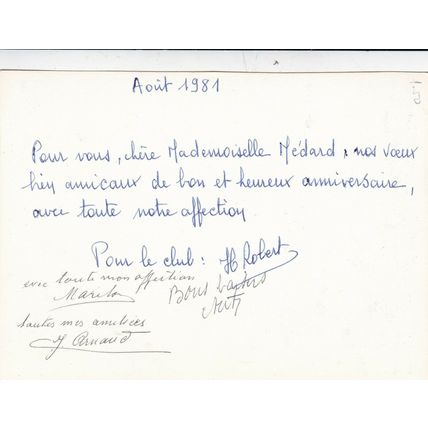 Août 1981
Pour vous, chère Mademoiselle Médard, nos vœux
bien amicaux de bon et heureux anniversaire,
avec toute notre affection
Pour le club : H Robert
avec toute mon affection
Bons
toutes mes amitiées
J Arnaud